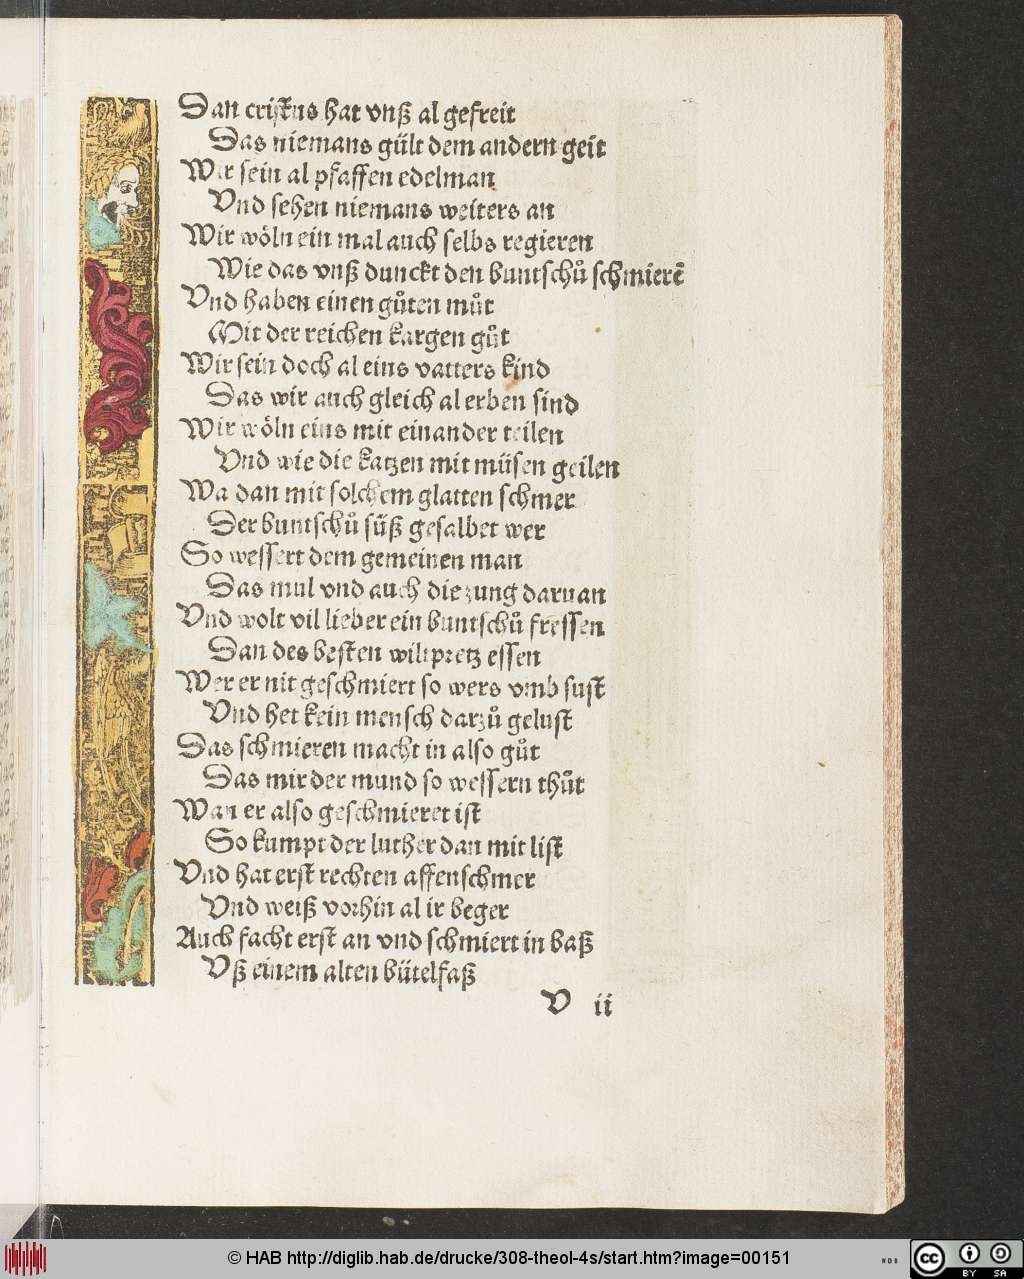 Dan cristus hat vnß al gefreit
Das niemans gült dem andern geit
Wir sein al pfaffen edelman
Vnd sehen niemans weiters an
Wir wöln ein mal auch selbs regieren
Wie das vnß dunckt den buntschů schmierē
Vnd haben einen gůten můt
Mit der reichen kargen gůt
Wir sein doch al eins vatters kind
Das wir auch gleich al erben sind
Wir wöln eins mit einander teilen
Vnd wie die katzen mit müsen geilen
Wa dan mit solchem glatten schmer
Der buntschů süß gesalbet wer
So wessert dem gemeinen man
Das mul vnd auch die zung daruan
Vnd wolt vil lieber ein buntschů fressen
Dan des besten wiltpretz essen
Wer er nit geschmiert so wers vmb sust
Vnd het kein mensch darzů gelust
Das schmieren macht in also gůt
Das mir der mund so wessern thůt
Wan er also geschmieret ist
So kumpt der luther dan mit list
Vnd hat erst rechten affenschmer
Vnd weiß vorhin al ir beger
Auch facht erst an vnd schmiert in baß
Vß einem alten bütelfaß
V ii
© HAB http://diglib.hab.de/drucke/308-theol-4s/start.htm?image=00151
WDB
cc BY SA